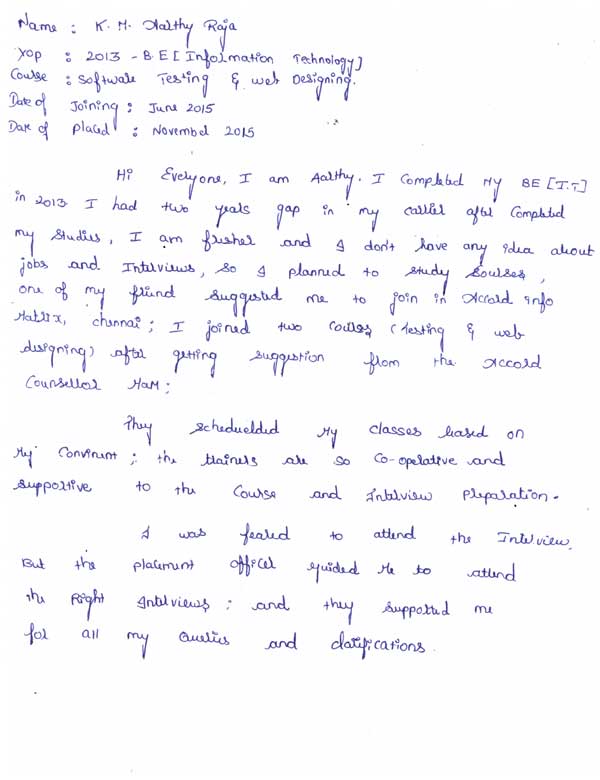 Name : K. M. Aarthy Raja
YOP : 2013 - B.E [Information Technology]
Course : Software Testing & web Designing.
Date of Joining : June 2015
Date of Placed : November 2015
Hi Everyone, I am Aarthy. I Completed My BE [I.T]
in 2013. I had two years gap in my carrier after Completed
my studies, I am fresher and I don't have any idea about
jobs and Interviews, so I planned to study Courses,
one of my friend suggested me to join in Accord info
Matrix, chennai; I joined two Courses (Testing & web
designing) after getting suggestion from the Accord
Counsellor MaM;
They schedueldded My classes based on
My Convinent ; the trainers are so Co-operative and
supportive to the Course and Interview Preparation.
I was feared to attend the Interview.
But the placement officer guided Me to attend
the Right Interviews ; and they supported me
for all my Queries and clarifications.